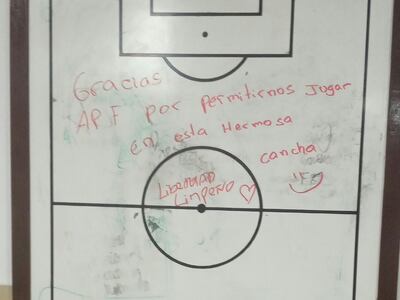 Gracias
APF por permitirnos Jugar
en esta Hermosa
cancha
LibertAD
LimpeÑO